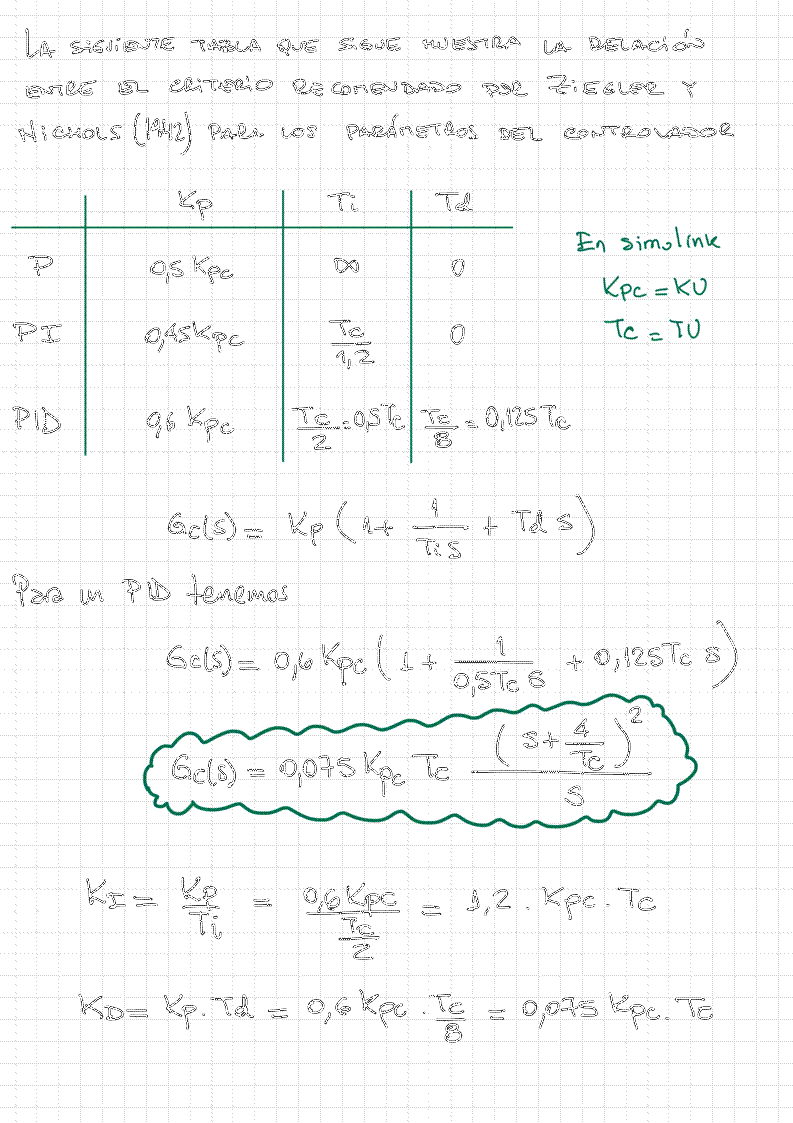 LA SIGUIENTE TABLA QUE SIGUE MUESTRA LA RELACIÓN
ENTRE EL CRITERIO RECOMENDADO POR ZIEGLER Y
NICHOLS (1942) PARA LOS PARÁMETROS DEL CONTROLADOR
Kp Ti Td
P 0,5 Kpc ∞ 0
PI 0,45 Kpc Tc/1,2 0
PID 0,6 Kpc Tc/2 = 0,5Tc Tc/8 = 0,125Tc
En simulink
Kpc = KU
Tc = TU
Gc(s) = Kp (1 + 1/(Ti s) + Td s)
Para un PID tenemos
Gc(s) = 0,6 Kpc (1 + 1/(0,5Tc s) + 0,125Tc s)
Gc(s) = 0,075 Kpc Tc (s + 4/Tc)² / s
KI = Kp/Ti = 0,6 Kpc/(Tc/2) = 1,2 . Kpc . Tc
KD = Kp . Td = 0,6 Kpc . Tc/8 = 0,075 Kpc . Tc